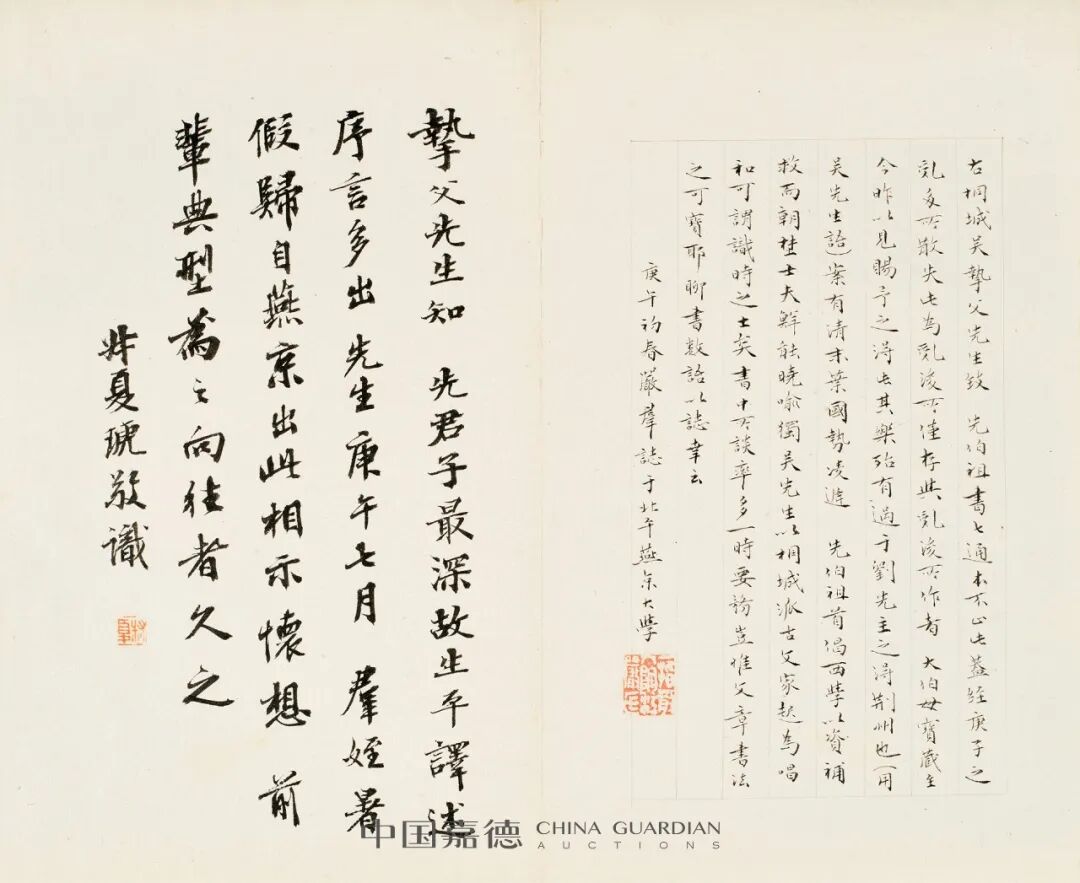 右桐城吴摯父先生致　先伯祖書七通本不止此蓋經庚子之
亂多所散失此為亂後所僅存與亂後所作者　大伯母寶藏至
今昨以見賜予之得此其樂殆有過于劉先主之得荆州也（用
吴先生語）案有清末葉國勢凌遲　先伯祖首倡西學以資補
救而朝野士夫鮮能曉喻獨吴先生以桐城派古文家起為唱
和可謂識時之士矣書中所談率多一時要務豈惟文章書法
之可寶耶聊書數語以誌幸云
庚午初春嚴羣誌于北平燕京大學
摯父先生知　先君子最深故生平譯述
序言多出　先生庚午七月　羣姪暑
假歸自燕京出此相示懷想　前
輩典型為之向往者久之
叔夏琥敬識
中国嘉德 CHINA GUARDIAN
AUCTIONS